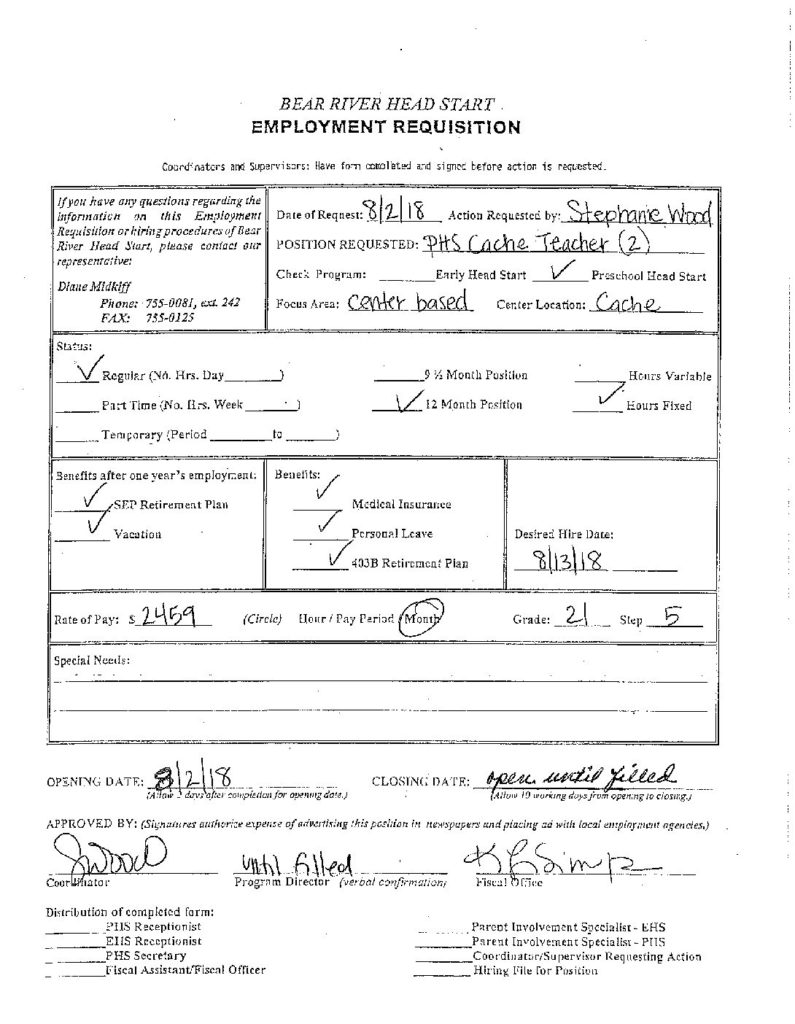 BEAR RIVER HEAD START
EMPLOYMENT REQUISITION
Coordinators and Supervisors: Have form completed and signed before action is requested.
If you have any questions regarding the
information on this Employment
Requisition or hiring procedures of Bear
River Head Start, please contact our
representative:
Diane Midkiff
Phone: 755-0081, ext. 242
FAX: 755-0125
Date of Request: 8/2/18 Action Requested by: Stephanie Wood
POSITION REQUESTED: PHS Cache Teacher (2)
Check Program: ______ Early Head Start ✓ Preschool Head Start
Focus Area: Center based Center Location: Cache
Status:
✓ Regular (No. Hrs. Day ______) ______ 9 ½ Month Position ______ Hours Variable
______ Part Time (No. Hrs. Week ______) ✓ 12 Month Position ✓ Hours Fixed
______ Temporary (Period ______ to ______)
Benefits after one year's employment:
✓ SEP Retirement Plan
✓ Vacation
Benefits:
✓ Medical Insurance
✓ Personal Leave
✓ 403B Retirement Plan
Desired Hire Date:
8/13/18
Rate of Pay: $ 2459 (Circle) Hour / Pay Period / Month Grade: 21 Step 5
Special Needs:
OPENING DATE: 8/2/18 CLOSING DATE: open until filled
(Allow 3 days after completion for opening date.) (Allow 10 working days from opening to closing.)
APPROVED BY: (Signatures authorize expense of advertising this position in newspapers and placing ad with local employment agencies.)
SWood until filled
Coordinator Program Director (verbal confirmation) Fiscal Office
Distribution of completed form:
______ PHS Receptionist
______ EHS Receptionist
______ PHS Secretary
______ Fiscal Assistant/Fiscal Officer
______ Parent Involvement Specialist - EHS
______ Parent Involvement Specialist - PHS
______ Coordinator/Supervisor Requesting Action
______ Hiring File for Position